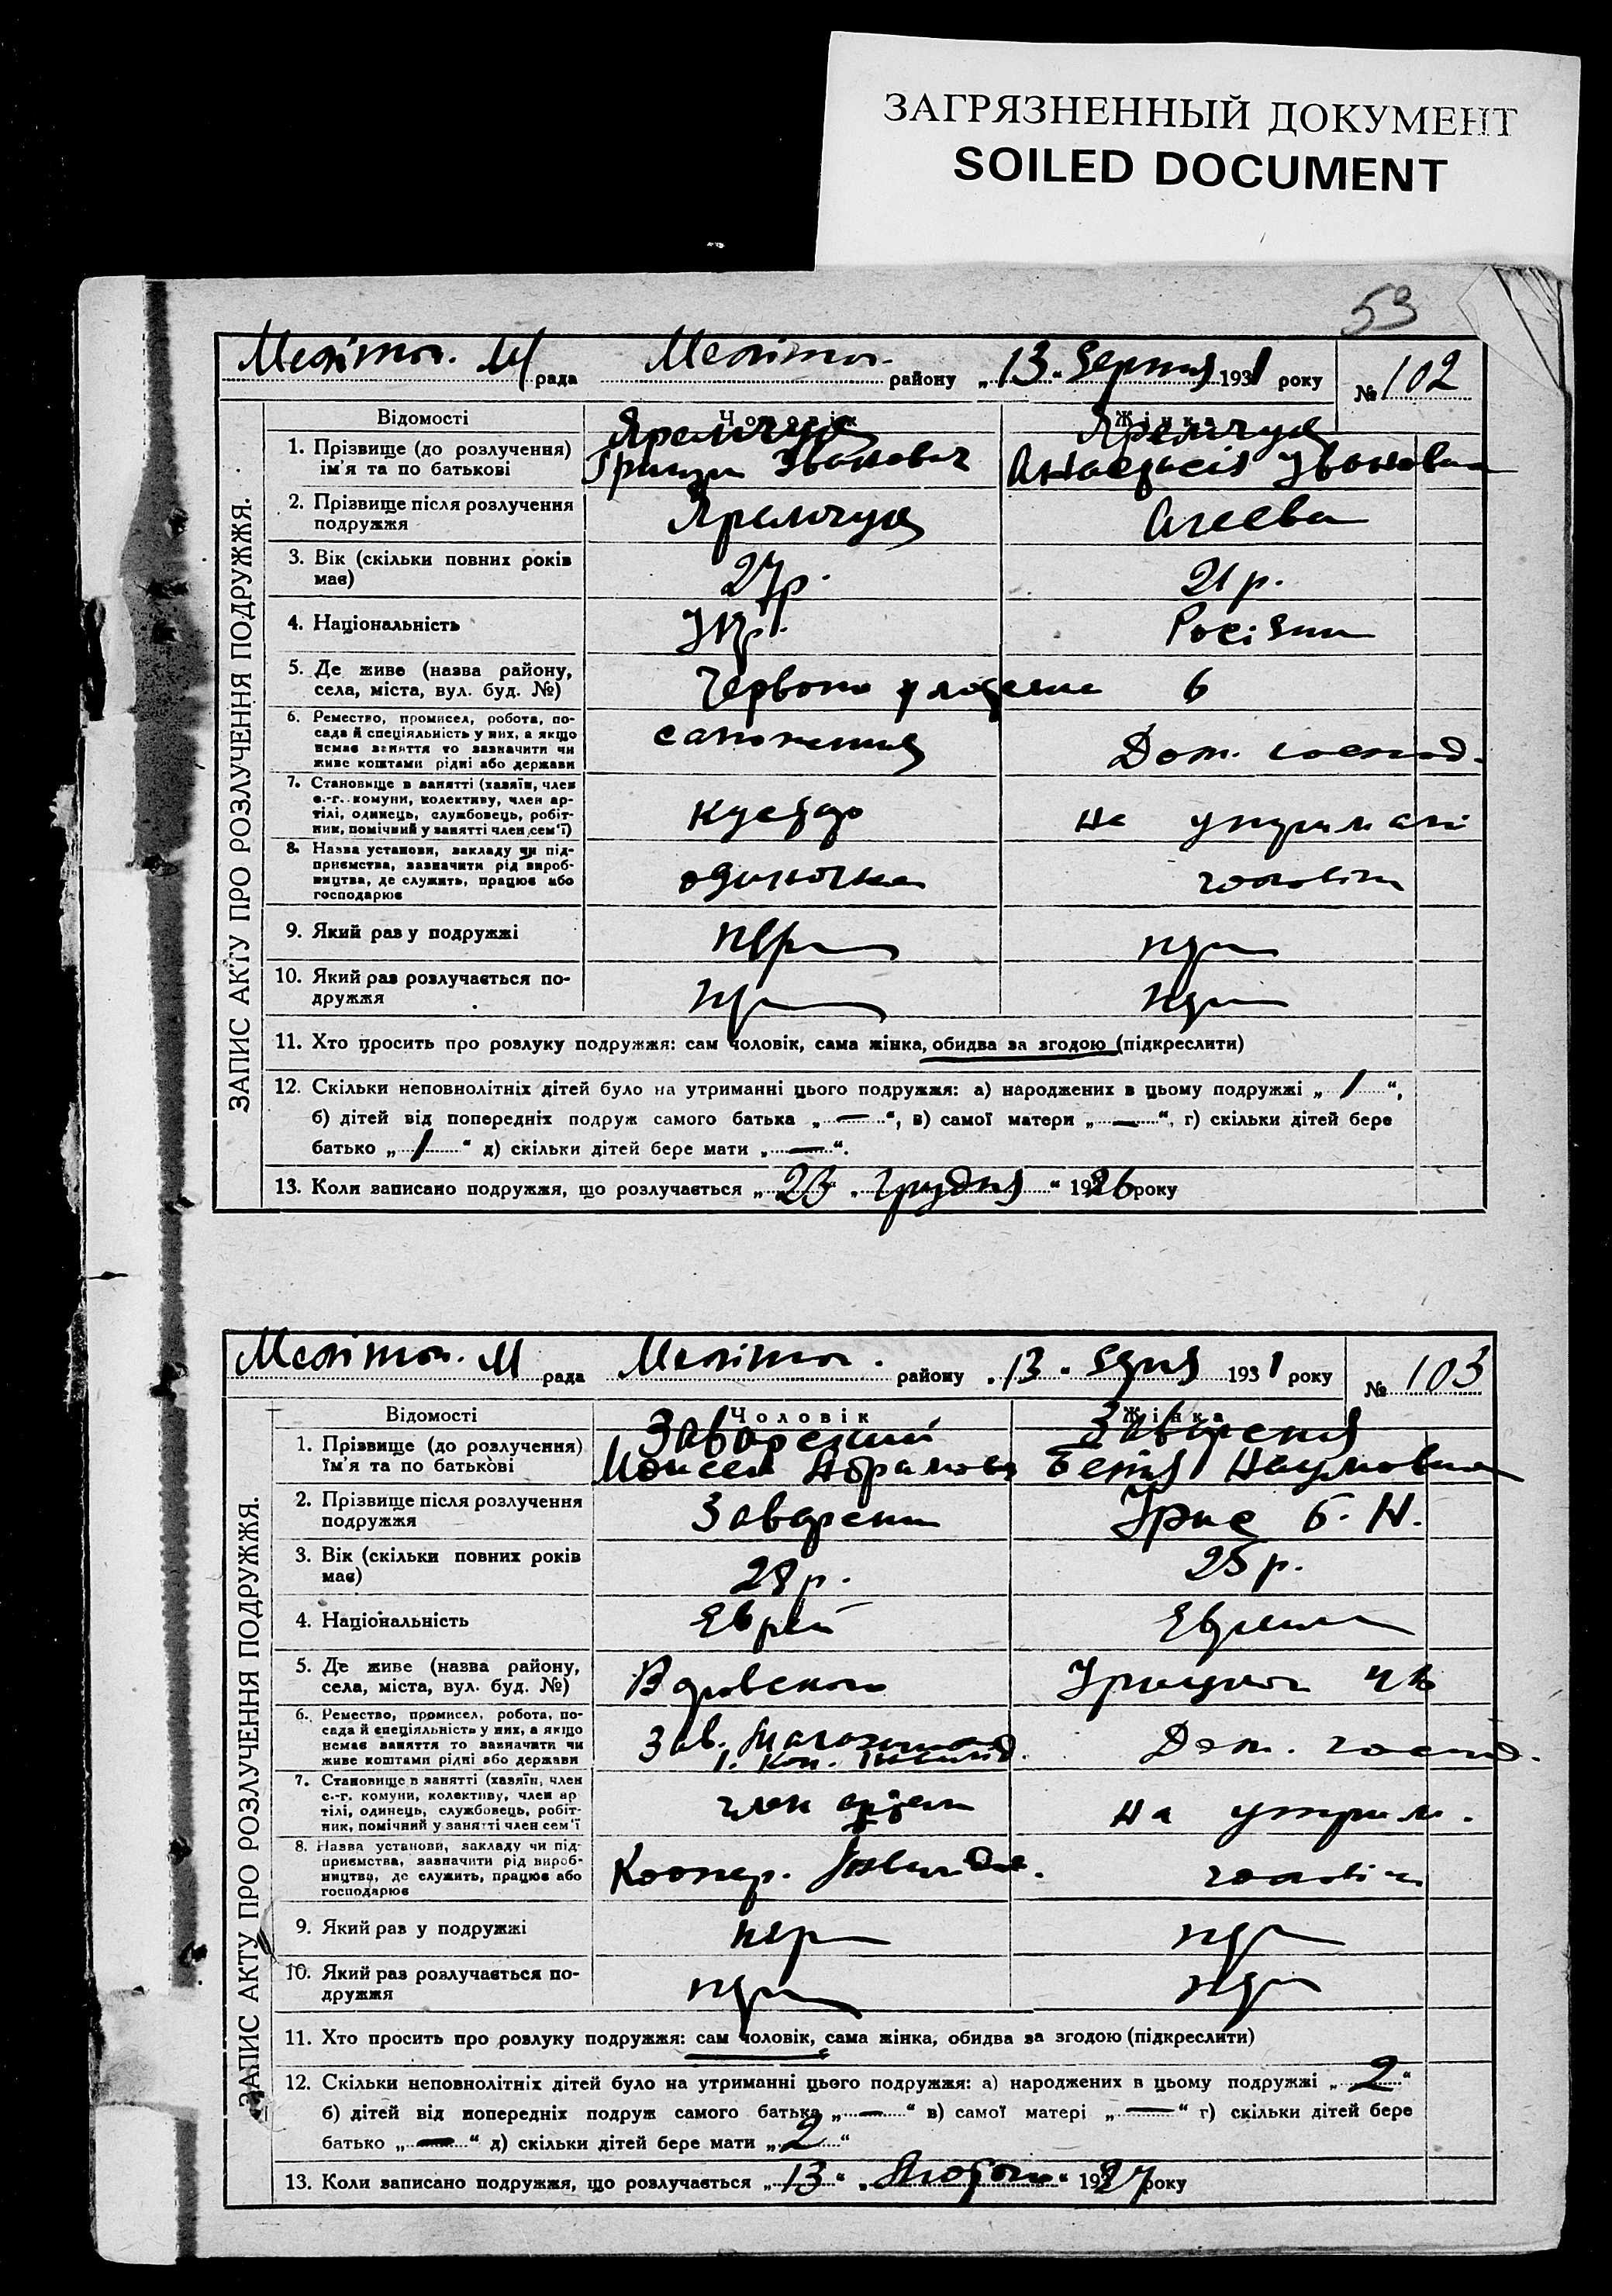 ЗАГРЯЗНЕННЫЙ ДОКУМЕНТ
SOILED DOCUMENT
53
ЗАПИС АКТУ ПРО РОЗЛУЧЕННЯ ПОДРУЖЖЯ.
Мелітоп. М рада Мелітоп. району „13" Серпня 1931 року № 102
Відомості Чоловік Жінка
1. Прізвище (до розлучення) Яремчук Яремчук
ім'я та по батькові Іванович Анастасія Івановна
2. Прізвище після розлучення Яремчук Агеева
подружжя
3. Вік (скільки повних років 27 р. 21 р.
має)
4. Національність Укр. Росіянка
5. Де живе (назва району, 6
села, міста, вул. буд. №) Червоно
6. Ремество, промисел, робота, по-
сада й спеціяльність у них, а якщо сапожник Дом. господ.
немає заняття то зазначити чи
живе коштами рідні або держави
7. Становище в занятті (хазяїн, член
с.-г. комуни, колективу, член ар- кустар на утриманні
тілі, одинець, службовець, робіт-
ник, помічний у занятті член сем'ї)
8. Назва установи, закладу чи під-
приємства, зазначити рід вироб- одиночка чоловіка
ництва, де служить, працює або
господарює
9. Який раз у подружжі перш перш
10. Який раз розлучається по- перш перш
дружжя
11. Хто просить про розлуку подружжя: сам чоловік, сама жінка, обидва за згодою (підкреслити)
12. Скільки неповнолітніх дітей було на утриманні цього подружжя: а) народжених в цьому подружжі „1",
б) дітей від попередніх подруж самого батька „—", в) самої матери „—", г) скільки дітей бере
батько „1" д) скільки дітей бере мати „—".
13. Коли записано подружжя, що розлучається „23" „грудня" 1926 року
ЗАПИС АКТУ ПРО РОЗЛУЧЕННЯ ПОДРУЖЖЯ.
Мелітоп. М рада Мелітоп. району „13" Серпня 1931 року № 103
Відомості Чоловік Жінка
1. Прізвище (до розлучення) Заварский Заварская
їм'я та по батькові Моисей Абрамов Наумовна
2. Прізвище після розлучення Б. Н.
подружжя
3. Вік (скільки повних років 28 р. 25 р.
має)
4. Національність Еврей Еврейка
5. Де живе (назва району,
села, міста, вул. буд. №) Урицкого
6. Ремество, промисел, робота, по-
сада й спеціяльність у них, а якщо Зав. магазином Дом. господ.
немає заняття то зазначити чи
живе коштами рідні або держави
7. Становище в занятті (хазяїн, член
с.-г. комуни, колективу, член ар член артели на утрим.
тілі, одинець, службовець, робіт-
ник, помічний у занятті член сем'ї
8. Назва установи, закладу чи під-
приємства, зазначити рід вироб- Коопер. Инвалид. чоловіка
ництва, де служить, працює або
господарює
9. Який раз у подружжі перш перш
10. Який раз розлучається по- перш перш
дружжя
11. Хто просить про розлуку подружжя: сам чоловік, сама жінка, обидва за згодою (підкреслити)
12. Скільки неповнолітніх дітей було на утриманні цього подружжя: а) народжених в цьому подружжі „2"
б) дітей від попередніх подруж самого батька „—" в) самої матері „—" г) скільки дітей бере
батько „—" д) скільки дітей бере мати „2"
13. Коли записано подружжя, що розлучається „13" „Лютого" 1927 року